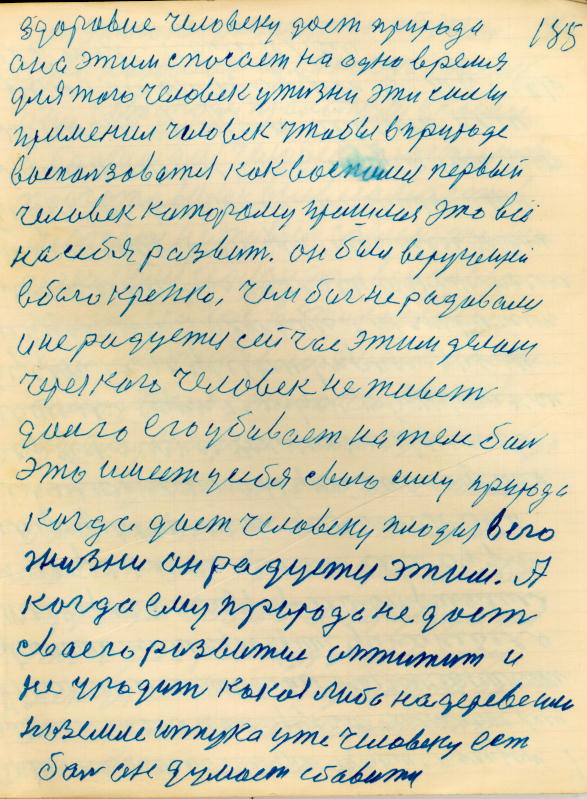 185
здоровие человеку дост природа
она этим спосает на одно время
для того человек у жизни эти силы
применил человек чтобы в природе
воспользоватся как первый
человек каторому пришлося это всё
на себя развит. он был верующий
в бога крепко, чем бог не радовал
и не радуется сейчас этим делом
через кого человек не живет
долго его убивает на тем бал
это имеет у себя свою силу природа
когда дост человеку плоды в его
жизни он радуется этим. А
когда ему природа не дост
своего развитие и
не уродит какой либо на деревени
на земле штука уже человеку ест
бал он думает сбавити